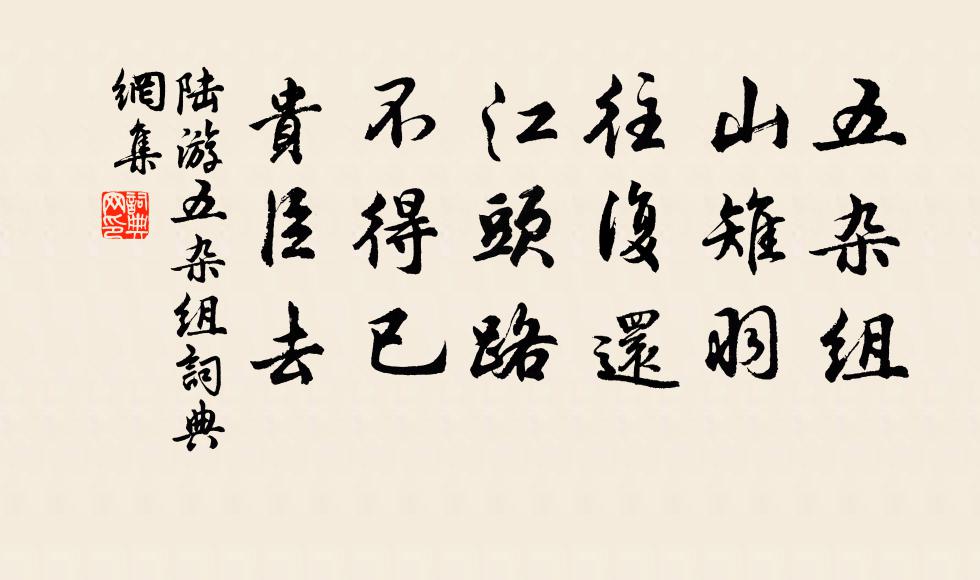 五杂组
山雉羽
往復還
江頭路
不得已
貴臣去
陆游五杂组詞典
網集
詞典
网印